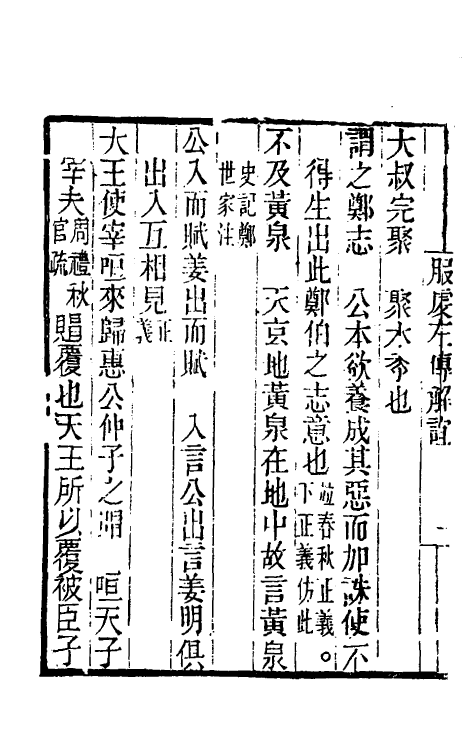 服虔左傳解誼 一
大叔完聚　聚禾黍也
謂之鄭志　公本欲養成其惡而加誅使不
得生出此鄭伯之志意也 竝春秋正義
下正義仿此。
不及黃泉　天玄地黃泉在地中故言黃泉
史記鄭
世家注
公入而賦姜出而賦　入言公出言姜明俱
出入互相見 正
義
天王使宰咺來歸惠公仲子之賵　咺天子
宰夫 周禮秋
官疏
賵覆也天王所以覆被臣子